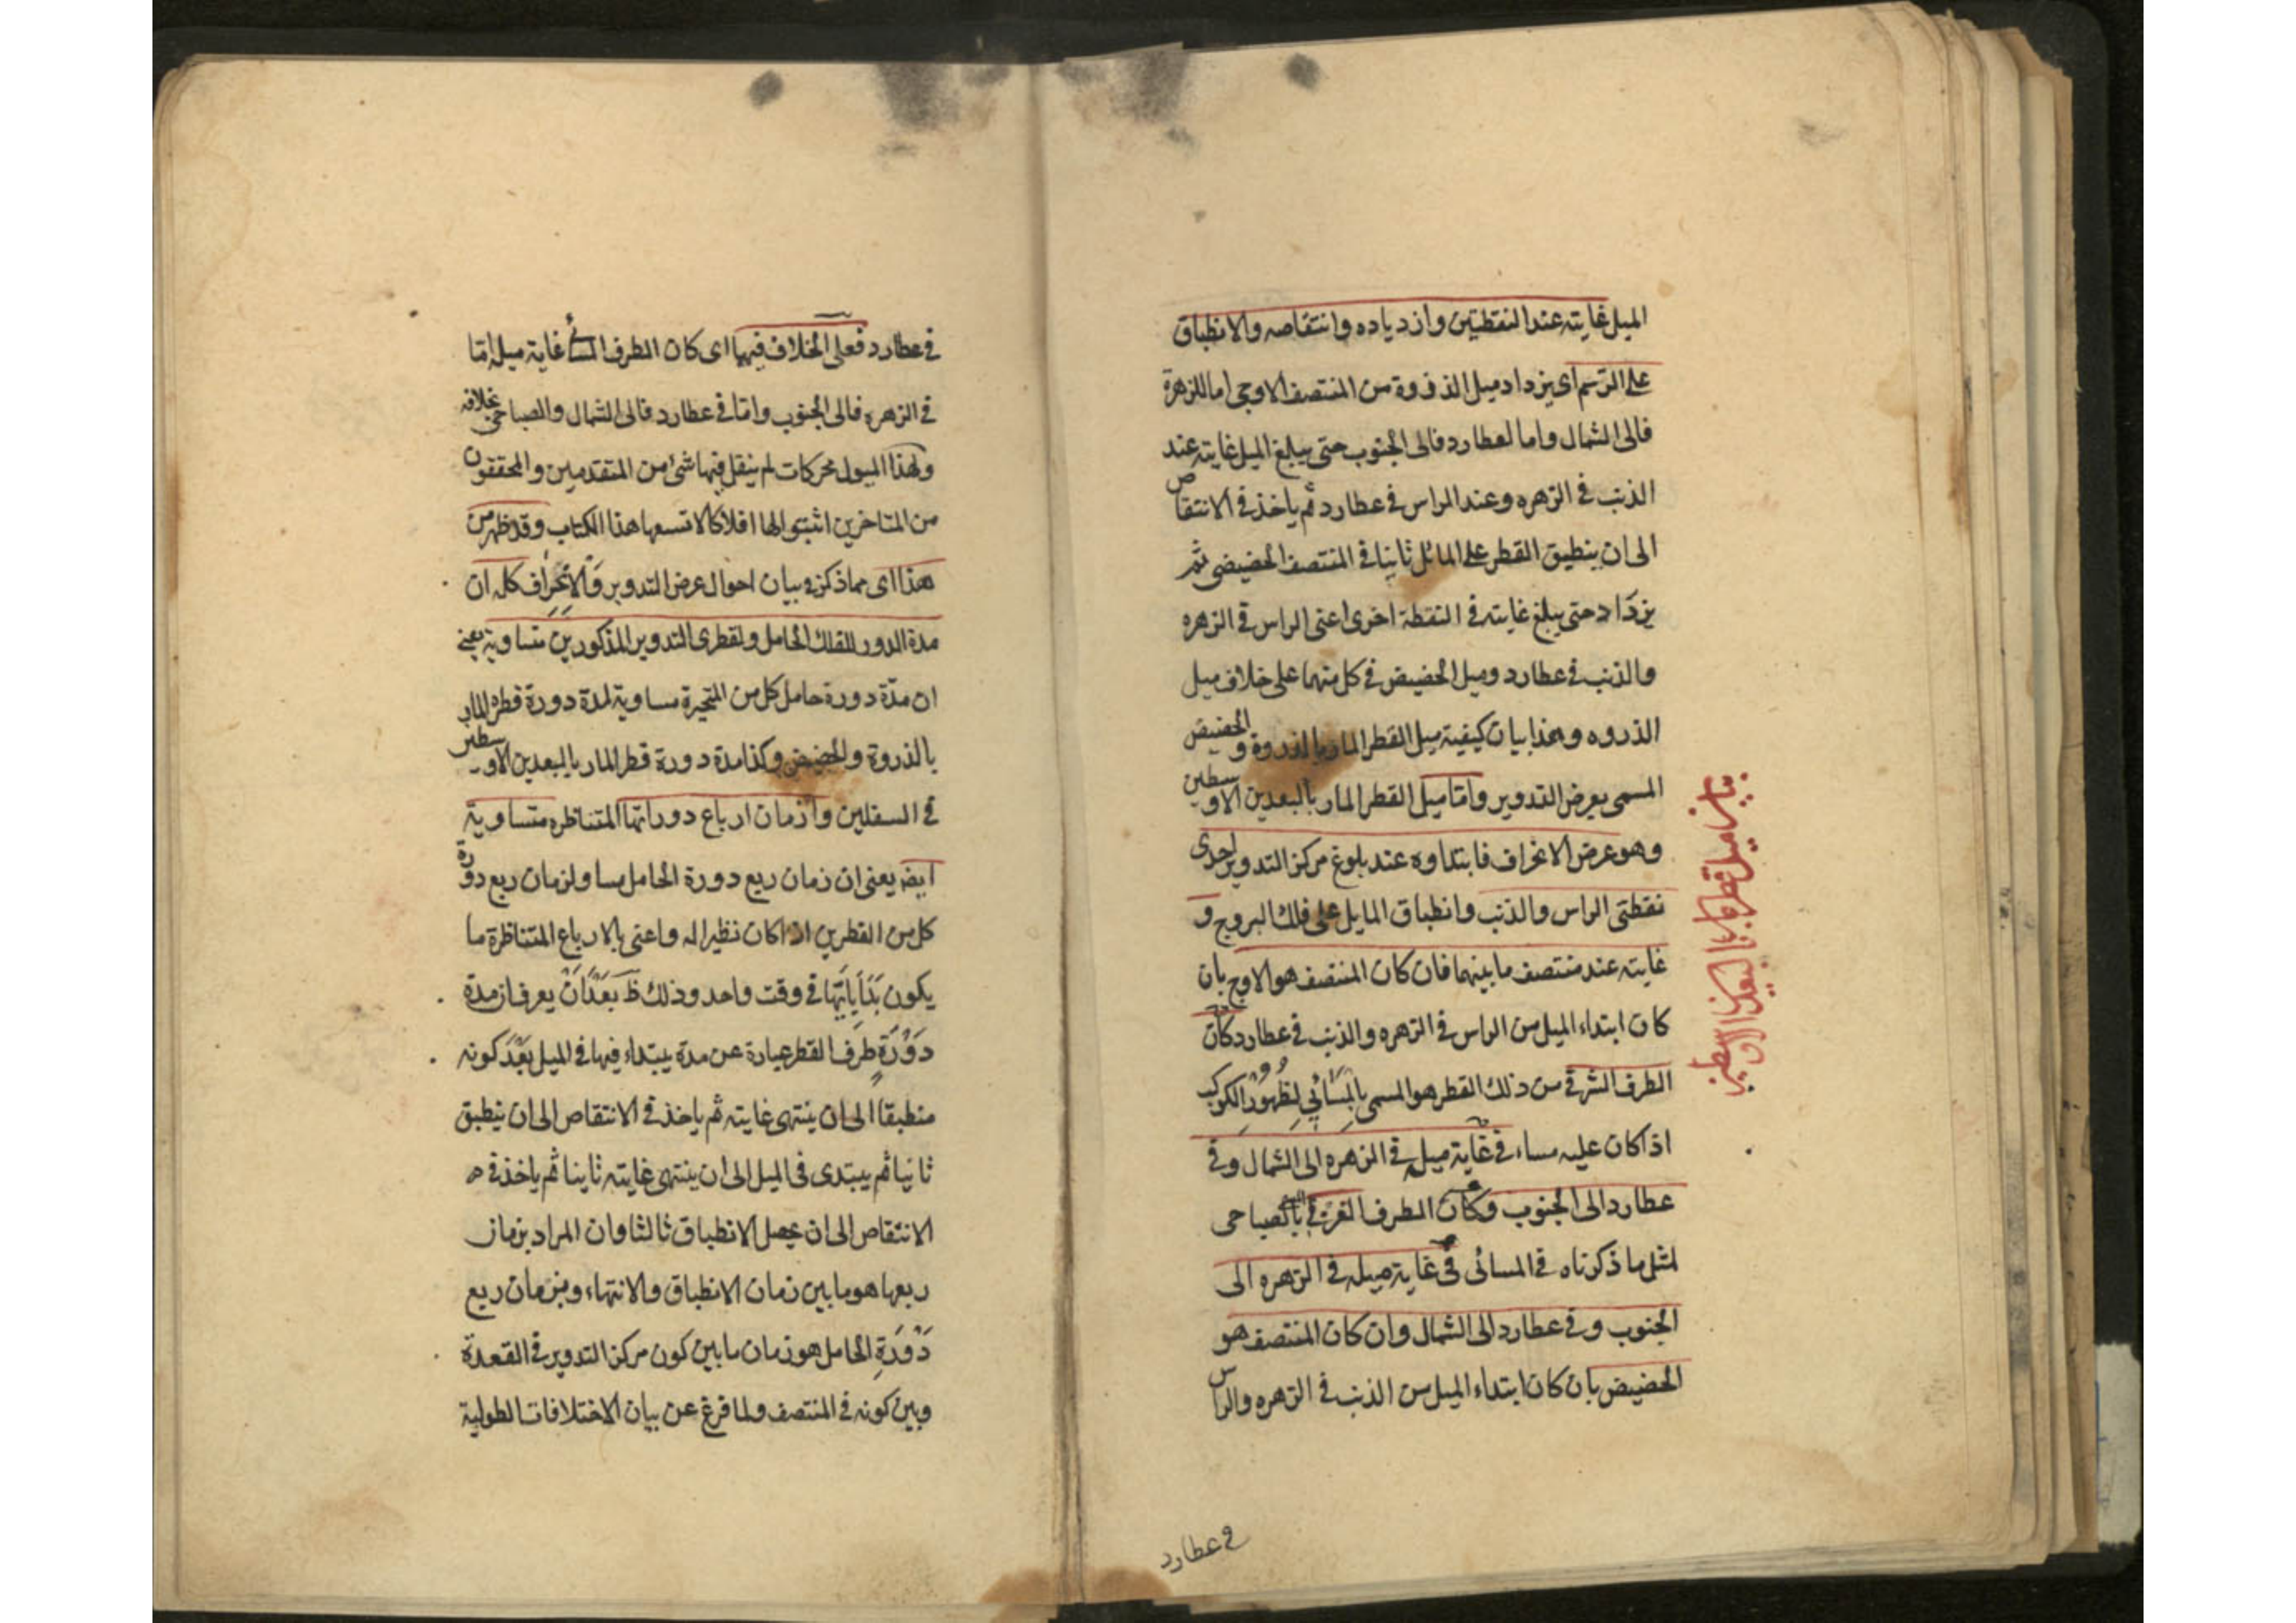 الميل غايته عند النقطتين وازدياده وانتقاصه والانطباق
على الرسم اى يزداد ميل الذروة من المنتصف الاوجى اما للزهرة
فالى الشمال واما لعطارد فالى الجنوب حتى يبلغ الميل غايته عند
الذنب فى الزهره وعند الراس فى عطارد ثم ياخذ فى الانتقاص
الى ان ينطبق القطر على المائل ثانيا فى المنتصف الحضيضى ثم
يزداد حتى يبلغ غايته فى النقطة اخرى اعنى الراس فى الزهره
والذنب فى عطارد وميل الحضيض فى كل منهما على خلاف ميل
الذروه وهذا بيان كيفية ميل القطر المار بالذروة والحضيض
المسمى بعرض التدوير واما ميل القطر المار بالبعدين الاوسطين
وهو عرض الانحراف فابتداوه عند بلوغ مركز التدوير احدى
نقطتى الراس والذنب وانطباق المايل على فلك البروج و
غايته عند منتصف ما بينهما فان كان المنتصف هو الاوج بان
كان ابتداء الميل من الراس فى الزهره والذنب فى عطارد كان
الطرف الشرقى من ذلك القطر هو المسمى بالمَسَائِي لِظُهُوْرِ الكوكب
اذا كان عليه مساء فى غاية ميله فى الزهره الى الشمال وفى
عطارد الى الجنوب وكان الطرف الغربى بالصباحى
لمثل ما ذكرناه فى المسائى فى غاية ميله فى الزهره الى
الجنوب وفى عطارد الى الشمال وان كان المنتصف هو
الحضيض بان كان ابتداء الميل من الذنب فى الزهره والراس
بيان ميل قطر مار بالبعدين الاوسطين
فى عطارد
فى عطارد فعلى الخلاف فيهما اى كان الطرف المسائى غاية ميله اما
فى الزهره فالى الجنوب واما فى عطارد فالى الشمال والصباحى بخلافه
ولهذا الميول محركات لم ينقل فيها شئ من المتقدمين والمحققون
من المتاخرين اثبتوا لها افلاكا لا تسعها هذا الكتاب وقد ظهر من
هذا اى مما ذكر فى بيان احوال عرض التدوير وَالاِنْحِرَافِ كله ان
مدة الدور للفلك الحامل ولقطرى التدوير المذكورين متساوية يعنى
ان مدّة دورة حامل كل من المتحيرة مساوية لمدة دورة قطره المار
بالذروة والحضيض وكذا مدة دورة قطر المار بالبعدين الاوسطين
فى السفليين وازمان ارباع دوراتها المتناظره متساوية
ايضا يعنى ان زمان ربع دورة الحامل مساو لزمان ربع دورة
كل من القطرين اذا كان نظيرا له واعنى بالارباع المتناظرة ما
يكون بَدَايَاتُهَا فى وقت واحد وذلك ظ بَعْدَ اَنْ يعرف ان مدة
دَوْرَةِ طَرَفِ القطر عبارة عن مدة يبتداء فيها فى الميل بَعْدَ كونه
منطبقا الى ان ينتهى غايته ثم ياخذ فى الانتقاص الى ان ينطبق
ثانيا ثم يبتدى فى الميل الى ان ينتهى غايته ثانيا ثم ياخذ فى
الانتقاص الى ان يحصل الانطباق ثالثا وان المراد بزمان
ربعها هو ما بين زمان الانطباق والانتهاء وبزمان ربع
دَوْرَةِ الحامل هو زمان ما بين كون مركز التدوير فى العقدة
وبين كونه فى المنتصف ولما فرغ عن بيان الاختلافات الطولية